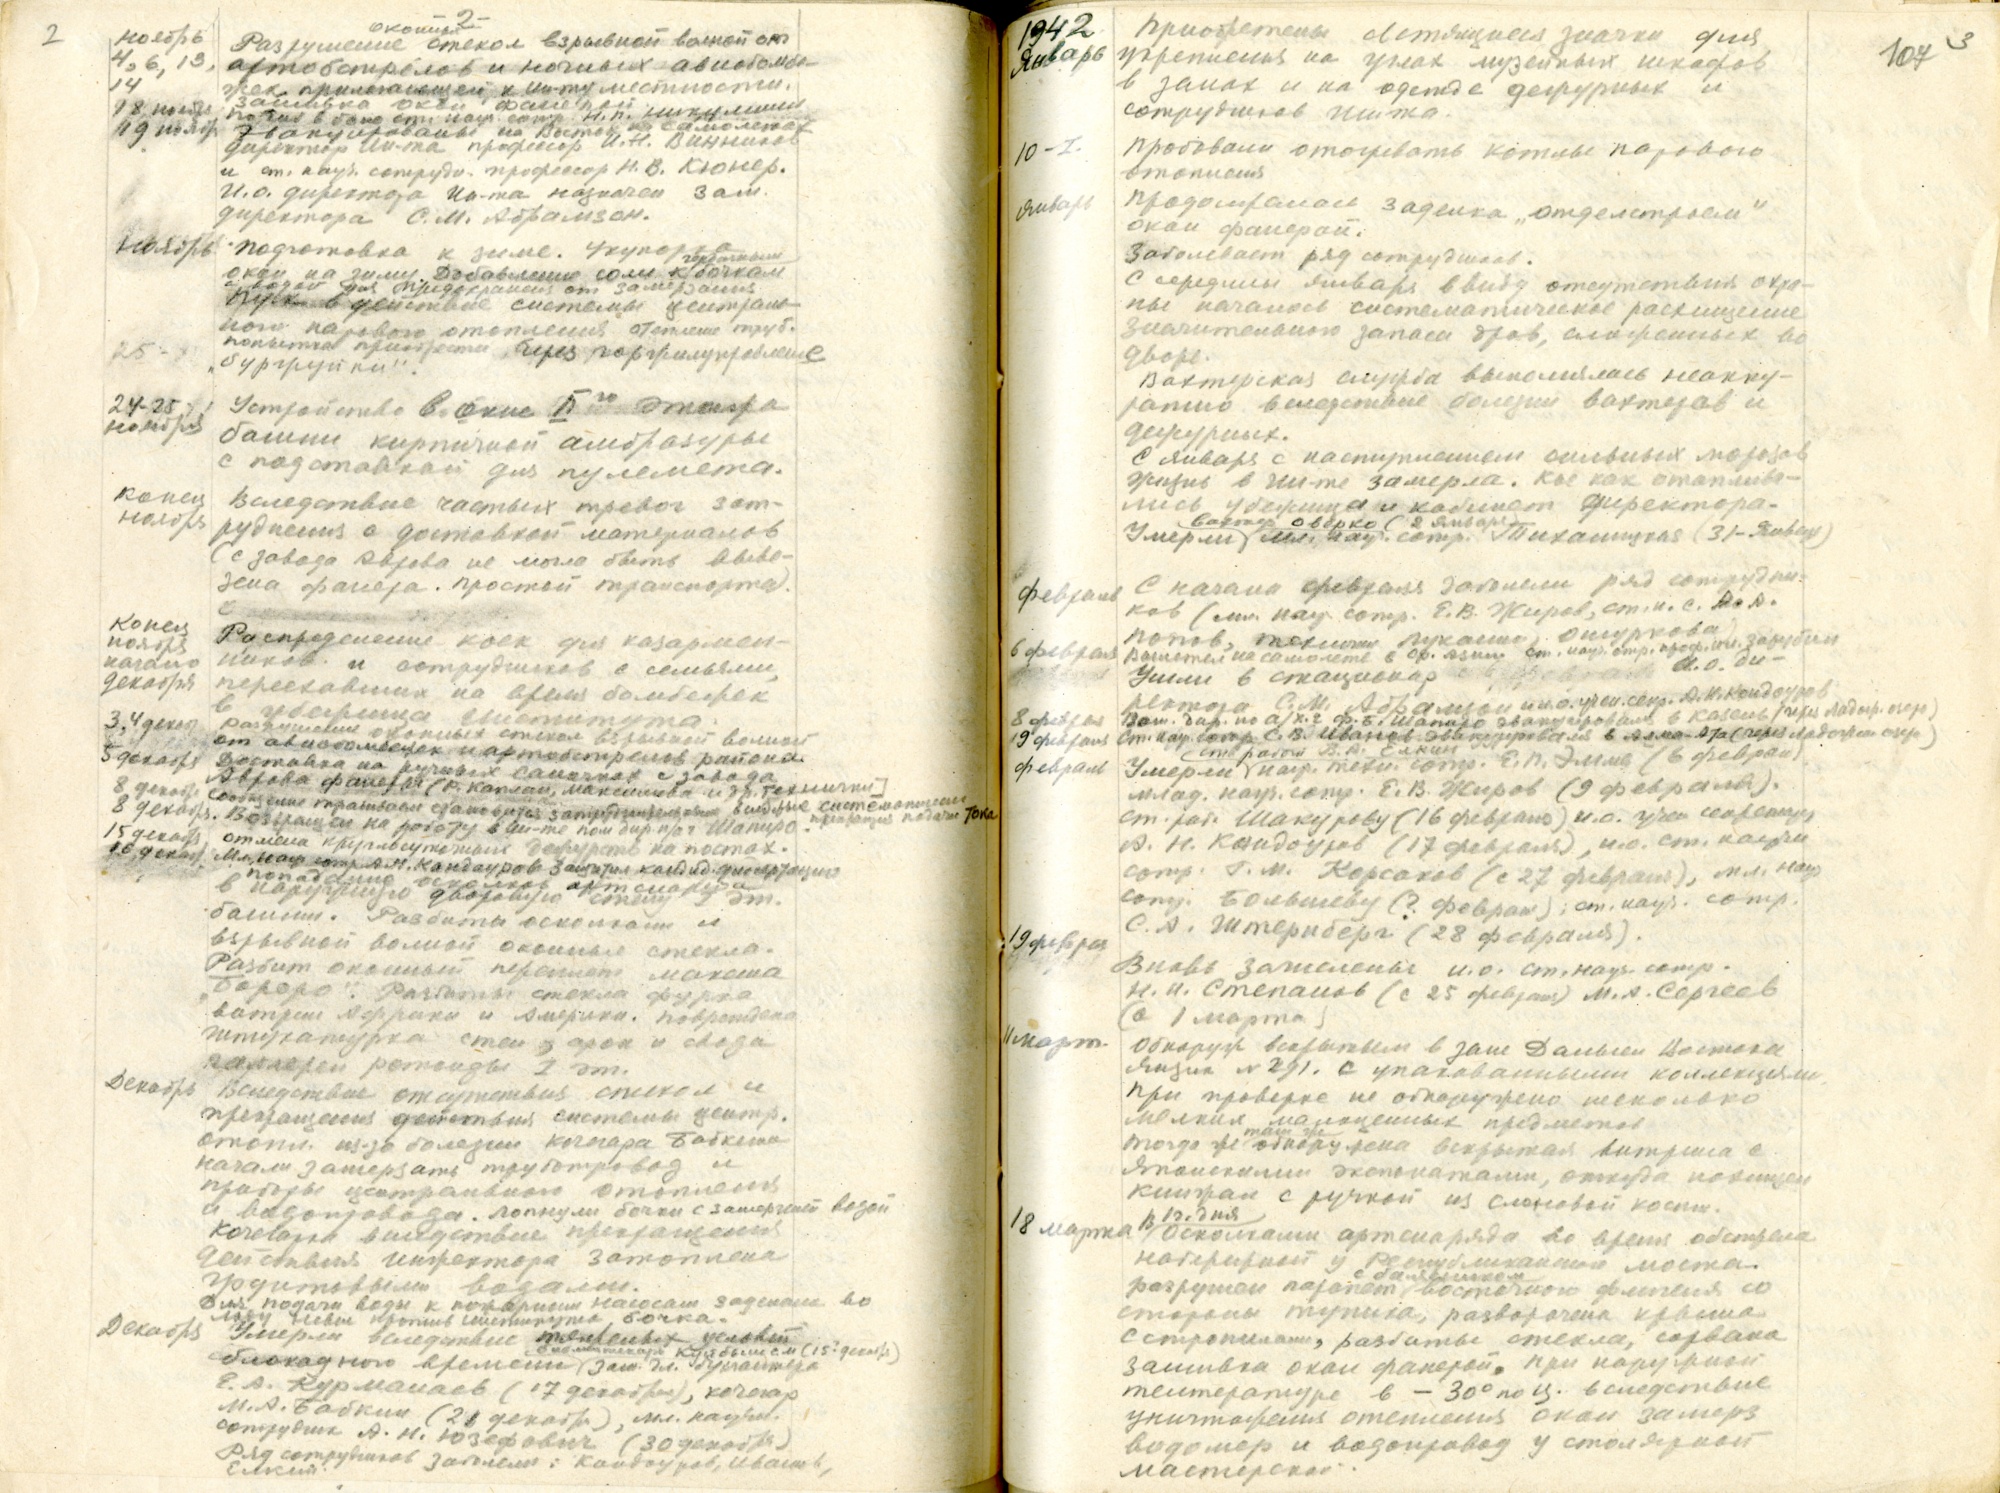 2
-2-
ноябрь
4, 6, 13,
14
оконных
Разрушение стекол взрывной волной от
артобстрелов и ночных авиабомбе-
жек прилегающей к Ин-ту местности.
Зашивка окон фанерой
18 ноябр
Погиб в бою ст. науч. сотр. Н.П. Никулин
19 ноябр
Эвакуированы на Восток на самолетах
директор Ин-та профессор И.Н. Винников
и ст. науч. сотрудн. профессор Н.В. Кюнер.
И.о. директора Ин-та назначен зам.
директора С.М. Абрамзон.
Ноябрь
Подготовка к зиме. Укупорка
окон на зиму. Добавление соли к бочкам
с водой для предохранения от замерзания
Пуск в действие системы централь-
ного парового отопления
попытка приобрести через
„буржуйки".
24-25
ноября
Устройство в окне II го этажа
башни кирпичной амбразуры
с подставкой для пулемета.
Конец
ноября
Вследствие частых тревог зат-
руднения с доставкой материалов
(с завода Аврова не могла быть выве-
зена фанера. Простой транспорта).
Конец
ноября
начало
декабря
Распределение коек для казармен-
ников и сотрудников с семьями,
переехавших на время бомбежек
в убежища Института.
3,4 декаб
Разрушение оконных стекол взрывной волной
от авиабомбежек и артобстрелов района.
5 декабря
Доставка на ручных саночках с завода
Аврова фанеры (Р. Каплан, Максимова и др. технички)
8 декабр
Сообщение трамваем становится затруднительным ввиду систематическ
прекращения подачи тока
8 декабр.
Возращен на работу в Ин-те пом. дир. Шапиро.
15 декабр
отмена круглосуточных дежурств на постах.
16 декаб.
Мл. науч. сотр. А.Н. Кондауров защитил кандид. диссертацию
попадание осколков артснаряда
в наружную дворовую стену 2 эт.
башни. Разбиты осколками и
взрывной волной оконные стекла.
Разбит оконный переплет
„Бороро". Разбиты стекла
витрин Африки и Америки. Повреждена
штукатурка стен, арок и свода
галлереи ротонды 2 эт.
Декабрь
Вследствие отсутствия стекол и
прекращения действия системы центр.
отопл. из-за болезни кочегара Бабкина
начали замерзать трубопровод и
приборы центрального отопления
и водопровода. Лопнули бочки с замерзшей водой
Кочегарка вследствие прекращения
действия инжектора затоплена
грунтовыми водами.
Для подачи воды к пожарным насосам заделана во
льду Невы против Института бочка.
Декабрь
Умерли вследствие тяжелых условий
блокадного времени (15 декабр)
зам. гл. бухгалтера
Е.А. Курманаев (17 декабря), кочегар
М.А. Бабкин (21 декабр), мл. научн.
сотрудник А.Н. Юзефович (30 декабря)
Ряд сотрудников заболели: Кондауров, Иванов,
Елкин.
104 3
1942
Январь
Приобретены светящиеся значки для
укрепления на углах музейных шкафов
в залах и на одежде дежурных и
сотрудников Ин-та.
10-I.
Пробовали отогревать котлы парового
отопления
Январь
Продолжалась заделка „отделстроем"
окон фанерой.
Заболевает ряд сотрудников.
С середины января ввиду отсутствия охра-
ны началось систематическое расхищение
значительного запаса дров, сложенных во
дворе.
Вахтерская служба выполнялась неакку-
ратно вследствие болезни вахтеров и
дежурных.
С января с наступлением сильных морозов
жизнь в Ин-те замерла. Кое как отаплива-
лись убежища и кабинет директора.
вахтер Оверко (2 января)
Умерли мл. науч. сотр. (31 января)
февраль
С начала февраля заболели ряд сотрудни-
ков (мл. нау. сотр. Е.В. Жиров, ст. н. с. А.А.
Попов, технички Лукашко, Ошуркова)
6 февраля
Вылетел на самолете в Ср. Азию ст. науч. сотр. проф. Зарубин
Ушли в стационар И.о. ди-
ректора С.М. Абрамзон и и.о. учен. секр. А.Н. Кондауров
8 февраля
Зам. дир. по а/х. ч. Ф.Б. Шапиро эвакуировался в Казань (через Ладожск. озеро)
19 февраля
Ст. нау. сотр. С.В. Иванов эвакуировался в Алма-Ата (через Ладожское озеро)
февраль
ст. рабоч. В.А. Елкин
Умерли науч. техн. сотр. Е.П. Эмме (6 февраля)
млад. науч. сотр. Е.В. Жиров (9 февраля).
ст. раб. Шакурову (16 февраля) и.о. учен секретаря
А.Н. Кондауров (17 февраля), и.о. ст. научн
сотр. Г.М. Корсаков (с 27 февраля), мл. нау
сотр. (? февраля); ст. науч. сотр.
С.А. Штернберг (28 февраля).
19 февраля
Вновь зачислены и.о. ст. науч. сотр.
Н.И. Степанов (с 25 февраля) М.А. Сергеев
(с 1 марта)
11 март.
Обнаруж вскрытым в зале Дальнего Востока
ящик № 291. с упакованными коллекциями
При проверке не обнаружено несколько
мелких малоценных предметов
там же
тогда же обнаружена вскрытая витрина с
японскими экспонатами, откуда похищен
кинжал с ручкой из слоновой кости.
18 марта
в 1 ч. дня
Осколками артснаряда во время обстрела
набережной у Республиканского моста.
разрушен парапет восточного флигеля со
стороны тупика, разворочена крыша
с стропилами, разбиты стекла, сорвана
зашивка окон фанерой. При наружной
температуре в – 30° по Ц. вследствие
уничтожения отепления окон замерз
водомер и водопровод у столярной
мастерской.